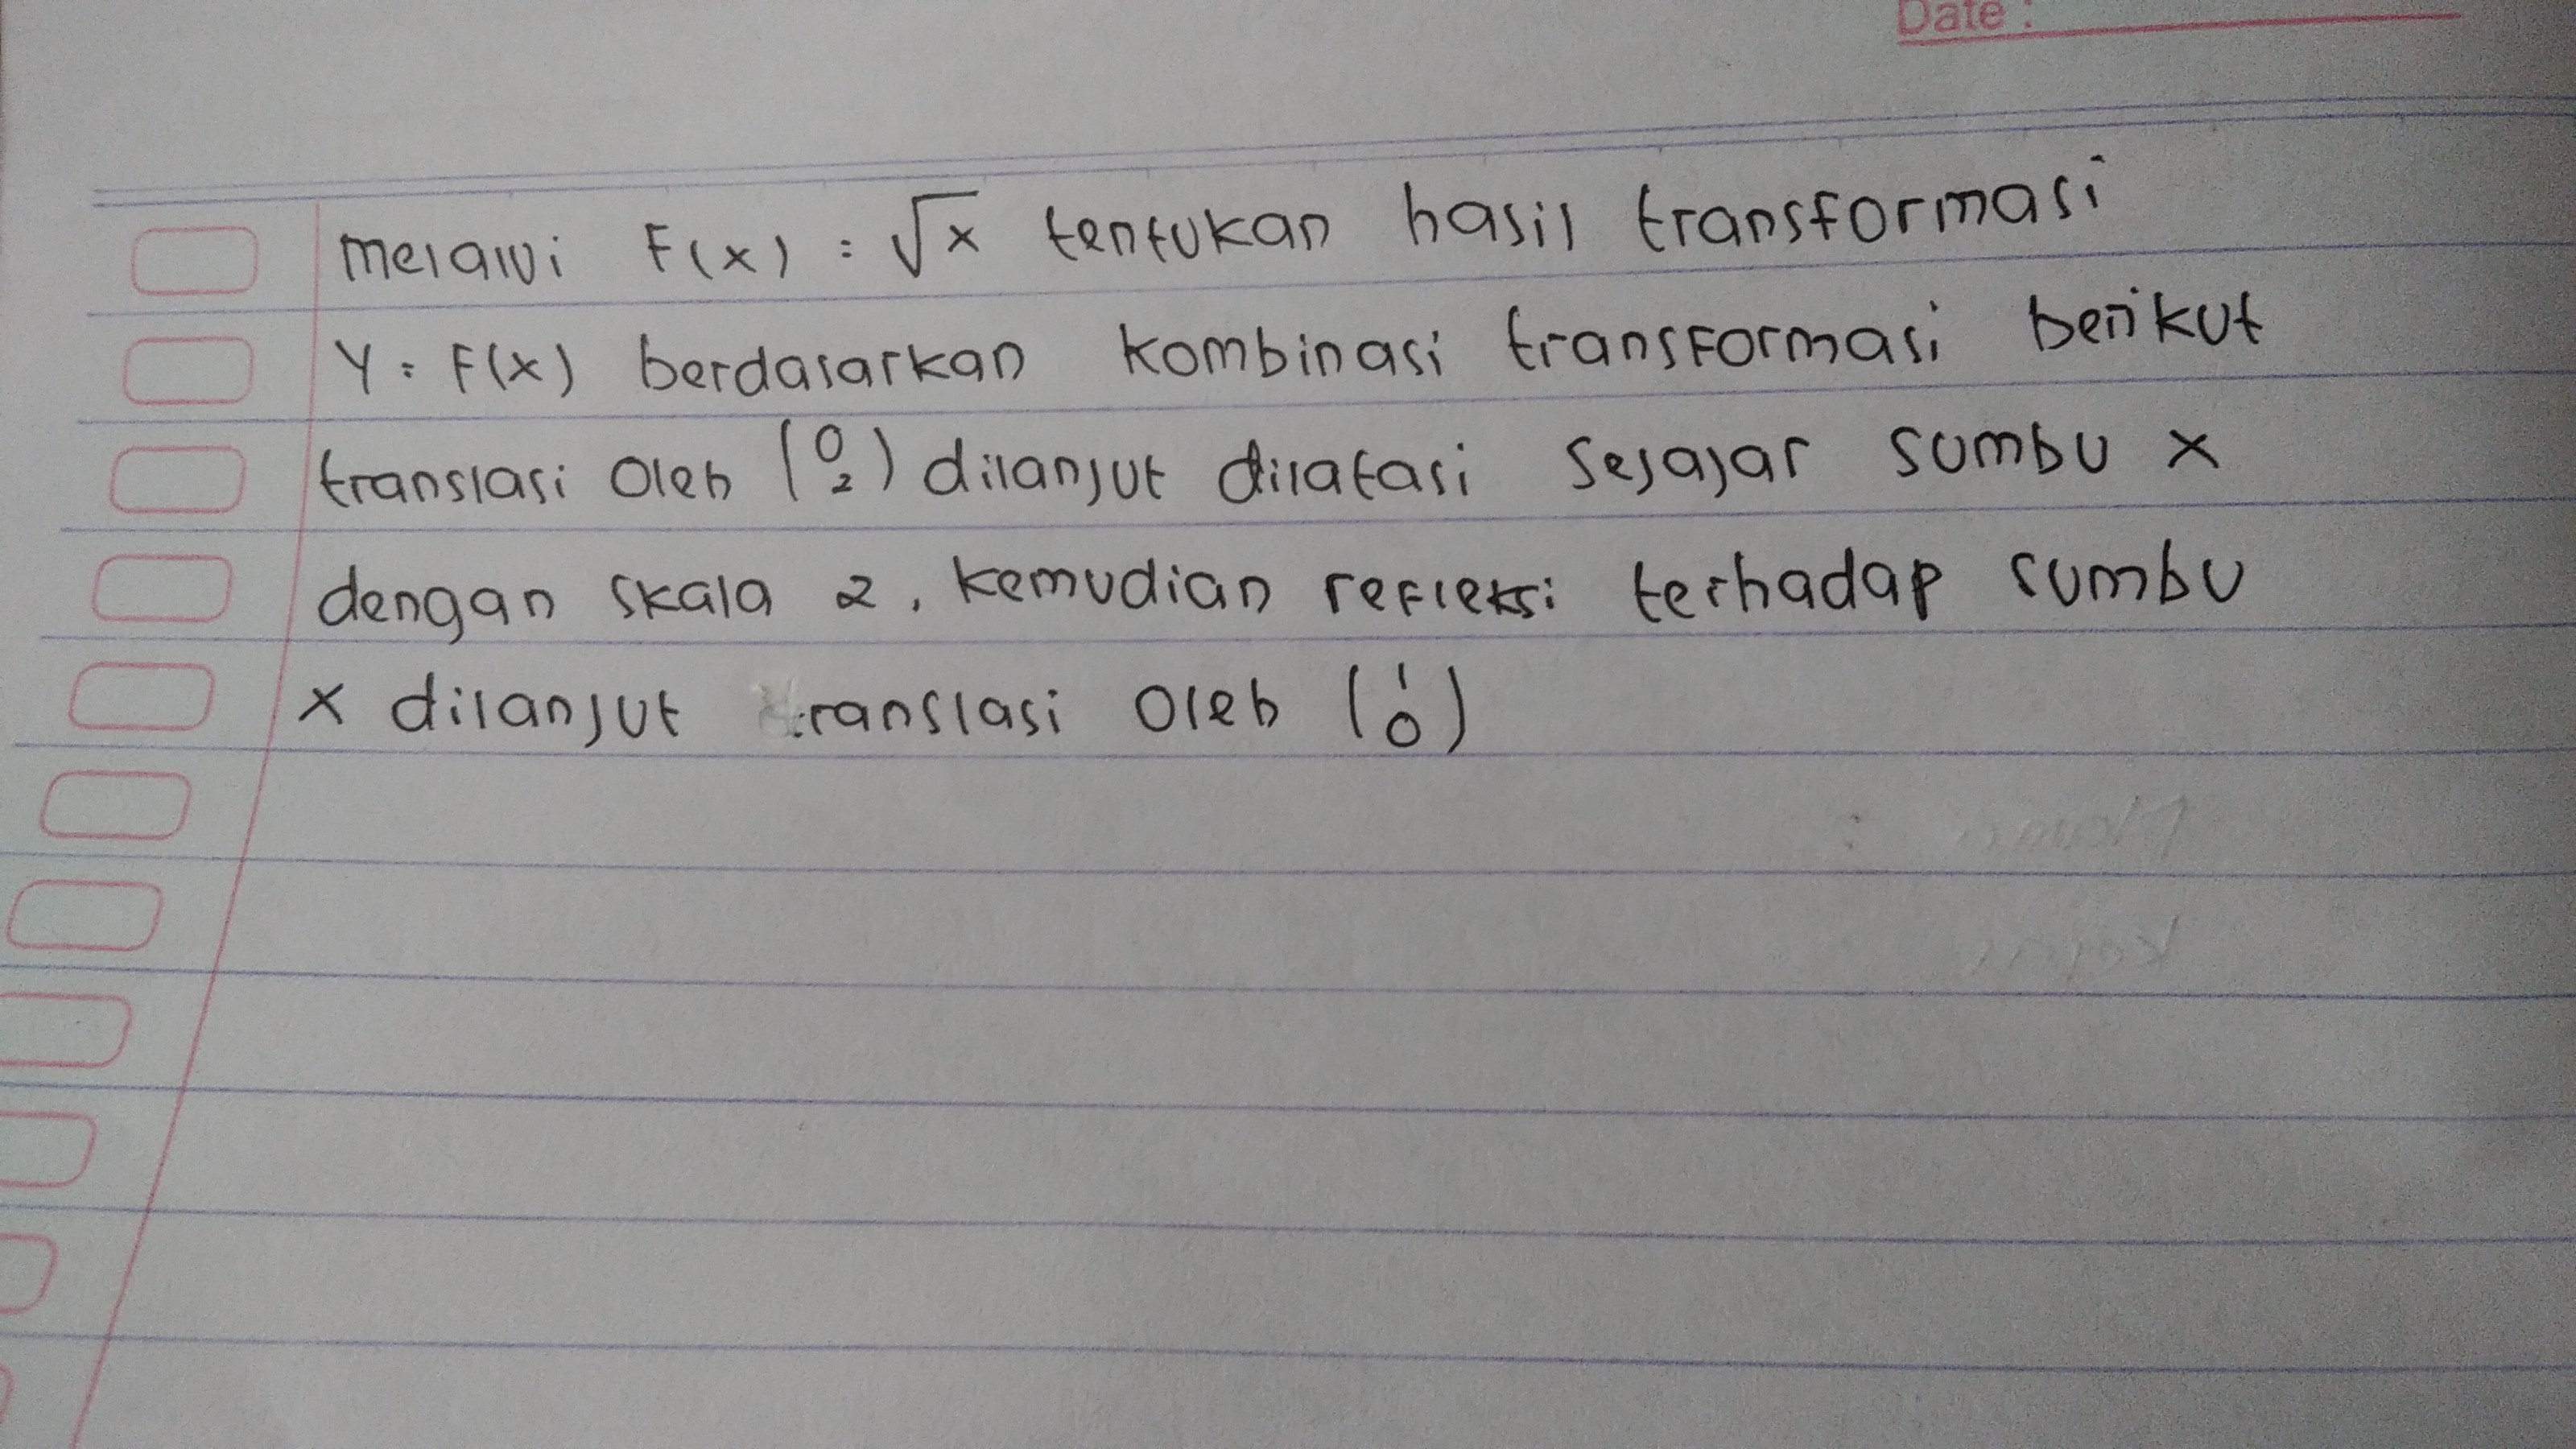 Date :
melalui F(x) = √x tentukan hasil transformasi
Y = F(x) berdasarkan kombinasi transformasi berikut
translasi oleh (0 2) dilanjut dilatasi sejajar sumbu x
dengan skala 2, kemudian refleksi terhadap sumbu
x dilanjut translasi oleh (1 0)